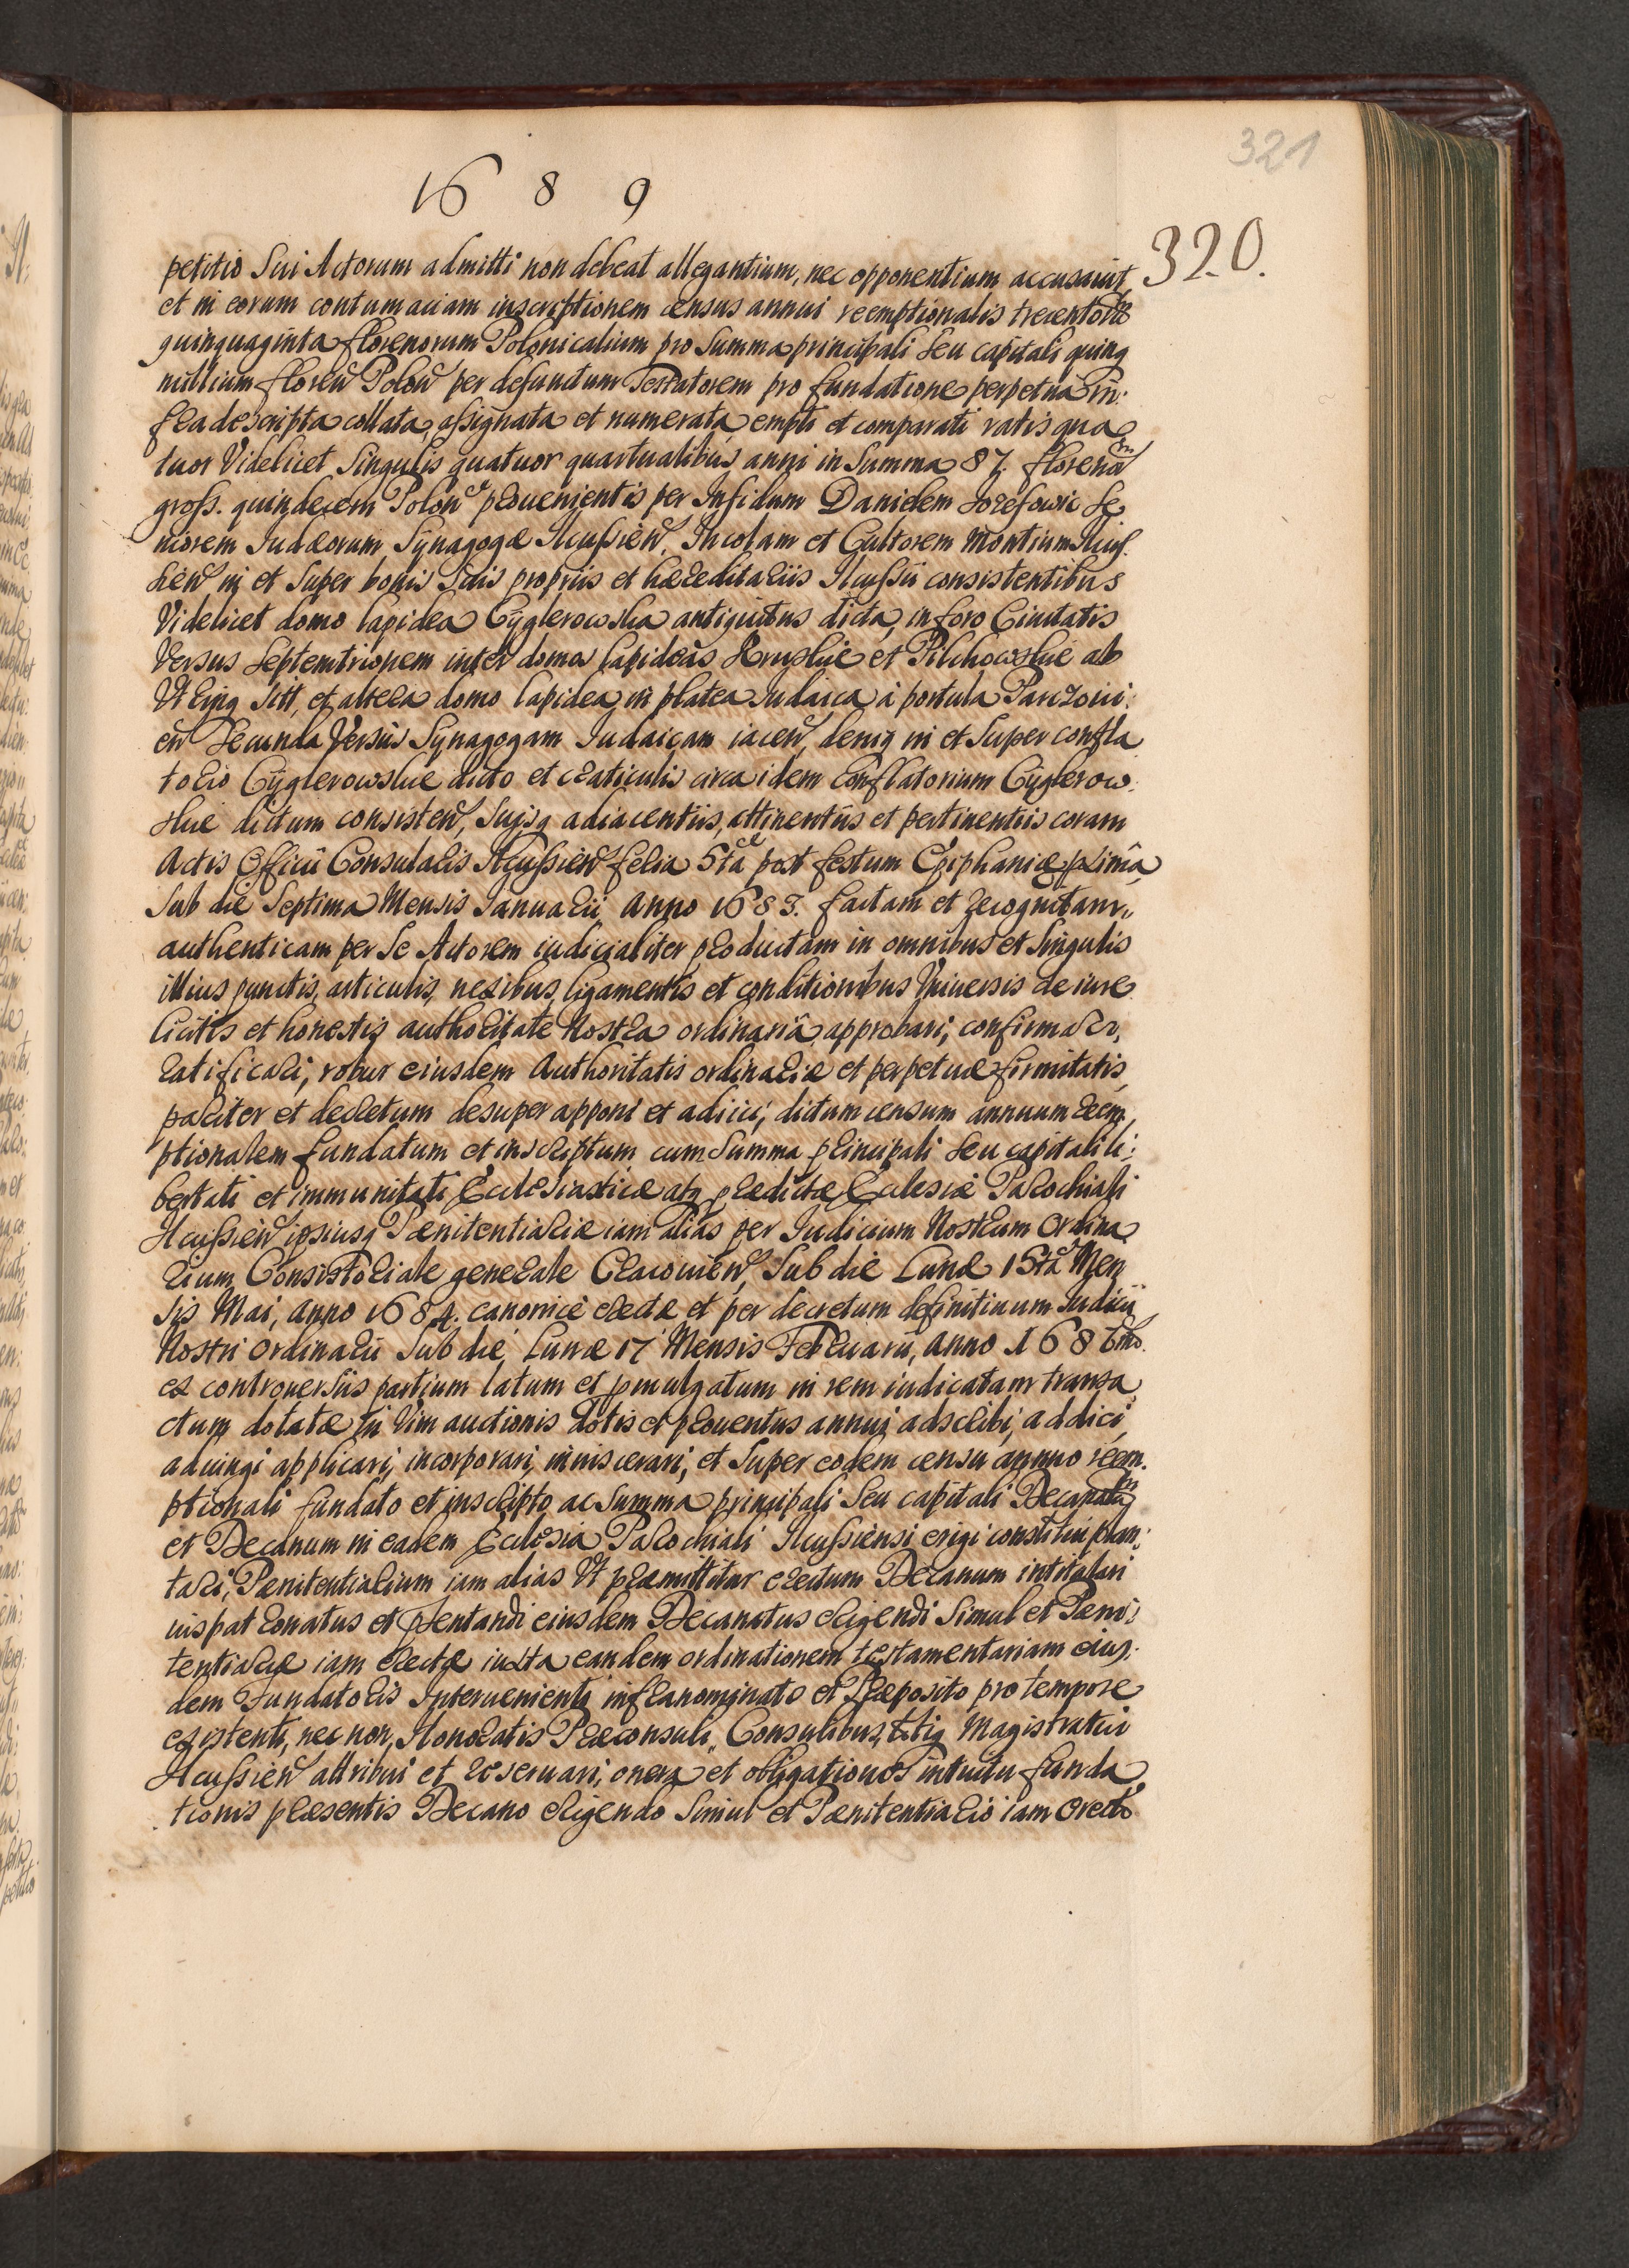 321
16 8 9
320.
petitio Sui Actorum admitti non debeat allegantium, nec opponentium accusavit,
et in eorum contumaciam inscriptionem census annui reemptionalis trecentorũ
quinquaginta florenorum Polonicalium pro Summa principali Seu capitali quinq
millium floren Polon per defunctum Testatorem pro fundatione perpetua in:
fra descripta collata, assignata et numerata empti et comparati ratis qua
tuor Videlicet Singulis quatuor quartualibus anni in Summa 87. florenorũ
gross. quindecem Polon provenientis per Infidum Danielem Jozefowic Se
niorem Judæorum Synagogæ Ilcussien, Incolam et Cultorem Montium Ilcus
sien in et Super bonis Suis propriis et hæreditariis Ilcussii consistentibus
Videlicet domo lapidea Cyglerowska antiquitus dicta, in foro Civitatis
Versus Septemtrionem inter domos lapideas Kruskie et Pilchowskie ab
Utrinq Sitt, et altera domo lapidea in platea Judaica à portula Parczovi:
en Secunda Versus Synagogam Judaicam iacen, deniq in et Super confla
torio Cyglerowskie dicto et craticulis circa idem Conflatorium Cyglerow:
skie dictum consisten, Suisq adiacentiis, attinentiis et pertinentiis coram
Actis Officii Consularis Ilcussien feria 5ta post festum Epiphaniæ prima
Sub die Septima Mensis Januarii Anno 1683. factam et recognitam,
authenticam per Se Actorem iudicialiter productam in omnibus et Singulis
illius punctis, articulis, nexibus, ligamentis et conditionibus Universis de iure
licitis et honestis authoritate Nostra ordinaria approbari, confirmari,
ratificari, robur eiusdem Authoritatis ordinariæ et perpetuæ firmitatis,
pariter et decretum desuper apponi et adiici, dictum censum annuum reem
ptionalem fundatum et inscriptum cum Summa principali Seu capitali li:
bertati et immunitati Ecclesiasticæ atq prædictæ Eccle​siæ Parochiali
Ilcussien ipsiusq Pænitentiariæ iam alias per Judicium Nostrum Ordina
rium Consistoriale generale Cracovien, Sub die Lunæ 15ta Men
sis Mai, Anno 1684. canonicè erectæ et per decretum definitivum Judicii
Nostri Ordinarii Sub die Lunæ 17 Mensis Februarii, Anno 1686to.
ex controversiis partium latum et pmulgatum in rem iudicatam transa
ctum dotatæ in Vim auctionis dotis et proventus annui adscribi, addici,
adiungi applicari, incorporari, inviscerari, et Super eodem censu annuo reem.
ptionali fundato et inscripto ac Summa principali Seu capitali Decanatũ
et Decanum in eadem Ecclesia Parochiali Ilcussiensi erigi constitui plan:
tari, Pænitentiarium iam alias Ut præmittitur erectum Decanum intitulari
iuspatronatus et pſentandi eiusdem Decanatus erigendi Simul et Pæni:
tentiariæ iam erectæ iuxta eandem ordinationem testamentariam eius:
dem Fundatoris Intervenienti infranominato et Præposito pro tempore
existenti, nec non, Honoratis Præconsuli, Consulibus, totiq Magistratui
Ilcussien attribui et reservari, onera et obligationes intuitu funda
tionis præsentis Decano erigendo Simul et Pænitentiario iam erecto